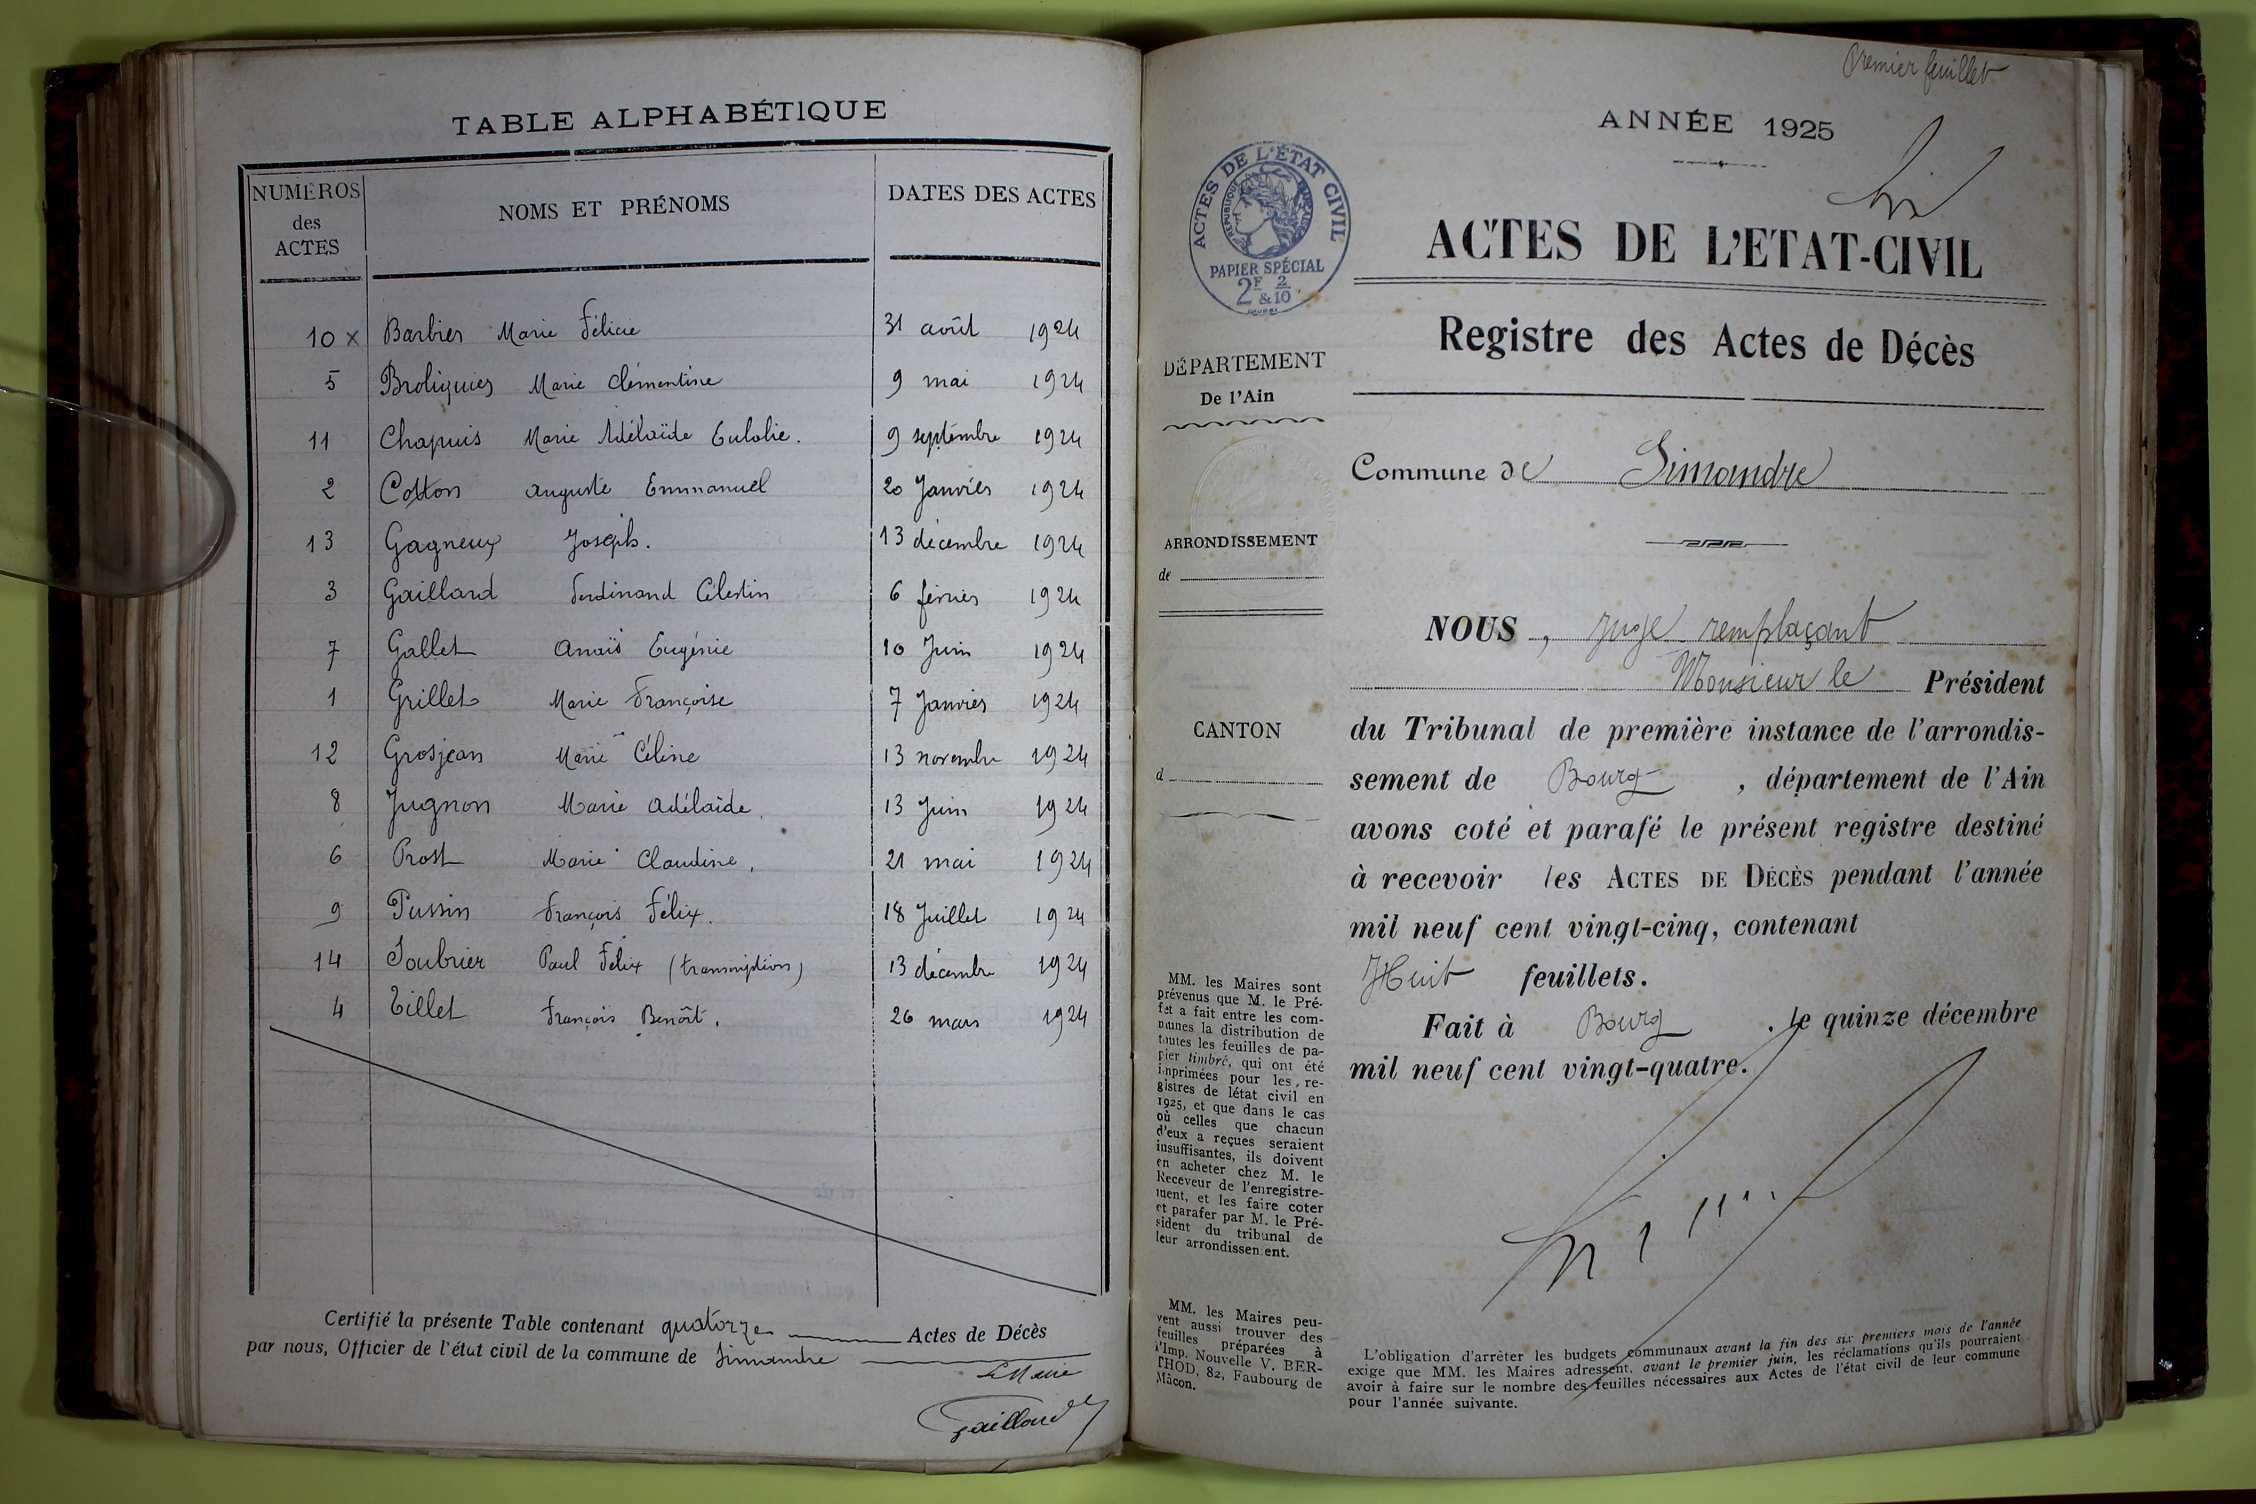 TABLE ALPHABÉTIQUE
NUMÉROS des ACTES NOMS ET PRÉNOMS DATES DES ACTES
10 x Barbier Marie Félicie 31 août 1924
5 Broliquier Marie Clémentine 9 mai 1924
11 Chapuis Marie Adélaïde Eulalie. 9 septembre 1924
2 Cotton Auguste Emmanuel 20 Janvier 1924
13 Gagneux Joseph. 13 décembre 1924
3 Gaillard Ferdinand Célestin 6 février 1924
7 Gallet Anaïs Eugénie 10 Juin 1924
1 Grillet Marie Françoise 7 Janvier 1924
12 Grosjean Marie Céline 13 novembre 1924
8 Jugnon Marie Adélaïde. 13 Juin 1924
6 Prost Marie Claudine. 21 mai 1924
9 Pussin François Félix. 18 Juillet 1924
14 Soubrier Paul Félix (transcription) 13 décembre 1924
4 Tillet François Benoît. 26 mars 1924
Certifié la présente Table contenant quatorze Actes de Décès
par nous, Officier de l'état civil de la commune de Simandre
Le Maire
Gaillard
Premier feuillet
ANNÉE 1925
ACTES DE L'ÉTAT CIVIL
RÉPUBLIQUE FRANÇAISE
PAPIER SPÉCIAL
2F & 2/10
ACTES DE L'ETAT-CIVIL
Registre des Actes de Décès
DÉPARTEMENT
De l'Ain
Commune de Simandre
ARRONDISSEMENT
de
CANTON
d
NOUS, Juge remplaçant
Monsieur le Président
du Tribunal de première instance de l'arrondis-
sement de Bourg, département de l'Ain
avons coté et parafé le présent registre destiné
à recevoir les ACTES DE DÉCÈS pendant l'année
mil neuf cent vingt-cinq, contenant
Huit feuillets.
Fait à Bourg. le quinze décembre
mil neuf cent vingt-quatre.
MM. les Maires sont
prévenus que M. le Pré-
fet a fait entre les com-
munes la distribution de
toutes les feuilles de pa-
pier timbré, qui ont été
imprimées pour les re-
gistres de létat civil en
1925, et que dans le cas
où celles que chacun
d'eux a reçues seraient
insuffisantes, ils doivent
en acheter chez M. le
Receveur de l'enregistre-
ment, et les faire coter
et parafer par M. le Pré-
sident du tribunal de
leur arrondissement.
MM. les Maires peu-
vent aussi trouver des
feuilles préparées à
l'Imp. Nouvelle V. BER-
THOD, 82, Faubourg de
Mâcon.
L'obligation d'arrêter les budgets communaux avant la fin des six premiers mois de l'année
exige que MM. les Maires adressent, avant le premier juin, les réclamations qu'ils pourraient
avoir à faire sur le nombre des feuilles nécessaires aux Actes de l'état civil de leur commune
pour l'année suivante.